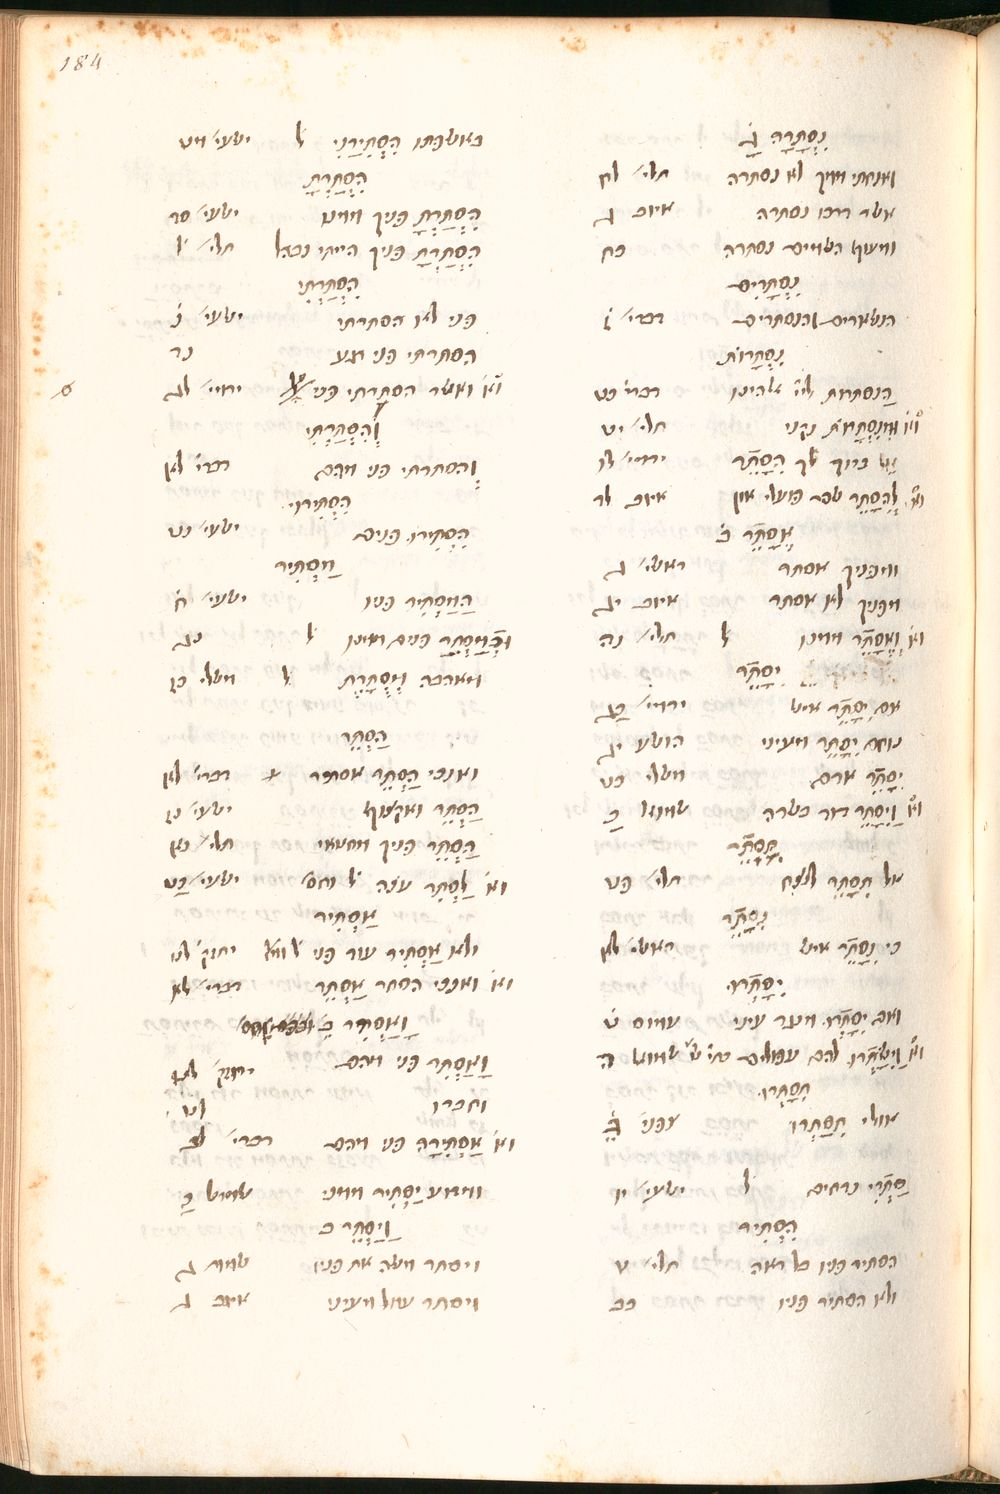 184
נִסְתָּרָה ג
ואנחתי ממך לא נסתרה תלי׳ לח
אשר דרכו נסתרה איוב ג
ומעוף השמים נסתרה כח
נִסְתָּרִים
הנשארים והנסתרים דברי׳ ז
נִסְתָּרוֹת
הַנסתרות ליי׳ אלהינו דברי׳ כט
וא׳ מִנִּסְתָּרוֹת נקני תלי׳ יט
אל ברוך לך הִסָּתֵר ירמי׳ לו
וא׳ לְהִסָּתֵר שם פועלי און איוב לד
אֶסָּתֵר ב
ומפניך אסתר ראשי׳ ד
מפניך לא אסתר איוב יג
וא׳ וְאֶסָּתֵר ממנו ל תלי׳ נה
יִסָּתֵר
אם יִסָּתֵר איש ירמי׳ כג
נוחם יִסָּתֵר מעיני הושע יג
יִסָּתֵר אדם משלי כח
וא׳ וַיִּסָּתֵר דוד בשדה שמוא׳ כ
תִּסָּתֵר
אל תִּסָּתֵר לנצח תלי׳ פט
נִסָּתֵר
כי נִסָּתֵר איש ראשי׳ לא
יִסָּתְרוּ
ואם יִסָּתְרוּ מנגד עיני עמוס ט
וא׳ וַיִּשָּׂתְרוּ להם עפולים שמוא׳ ה
תִּסָּתְרוּ
אולי תִּסָּתְרוּ צפני׳ ב
סַתְּרִי נדחים ל ישעי׳ יו
הִסְתִּיר
הסתיר פניו בל ראה תלי׳ י
ולא הסתיר פניו כב
הִסְתִּירַנִי ל ישעי׳ מט
הִסְתַּרְתָּ
הִסְתַּרְתָּ פניך ממנו ישעי׳ סד
הִסְתַּרְתָּ פניך הייתי נבהל תלי׳ ל
הִסְתַּרְתִּי
פני לא הסתרתי ישעי׳ נ
הסתרתי פני רגע נד
וא׳ ואשר הסתרתי פני ירמי׳ לג
וְהִסְתַּרְתִּי
וְהסתרתי פני מהם דברי׳ לא
הִסְתִּירוּ
הִסְתִּירוּ פנים ישעי׳ נט
מַסְתִּיר
הַמַּסְתִּיר פניו ישעי׳ ח
וּכְמַסְתֵּר פנים ממנו ל נג
מאהבה מְסֻתָּרֶת ל משלי כז
הַסְתֵּר
ואנכי הַסְתֵּר אסתיר דברי׳ לא
הַסְתֵּר ואקצוף ישעי׳ נז
הַסְתֵּר פניך מחטאי תלי׳ נא
וא׳ לַסְתִּר עצה ל וחס׳ ישעי׳ כט
אַסְתִּיר
ולא אַסְתִּיר עוד פני יחזק׳ לט
וא׳ ואנכי הסתר אַסְתִּיר דברי׳ לא
וָאַסְתִּר ב
וָאַסְתִּר פני מהם יחזק׳ לט
וחברו
וא׳ אַסְתִּירָה פני מהם דברי׳ לב
ומדוע יַסְתִּיר ממני שמוא׳ כ
וַיַּסְתֵּר ב
ויסתר משה את פניו שמות ג
ויסתר עמל מעיני איוב ג